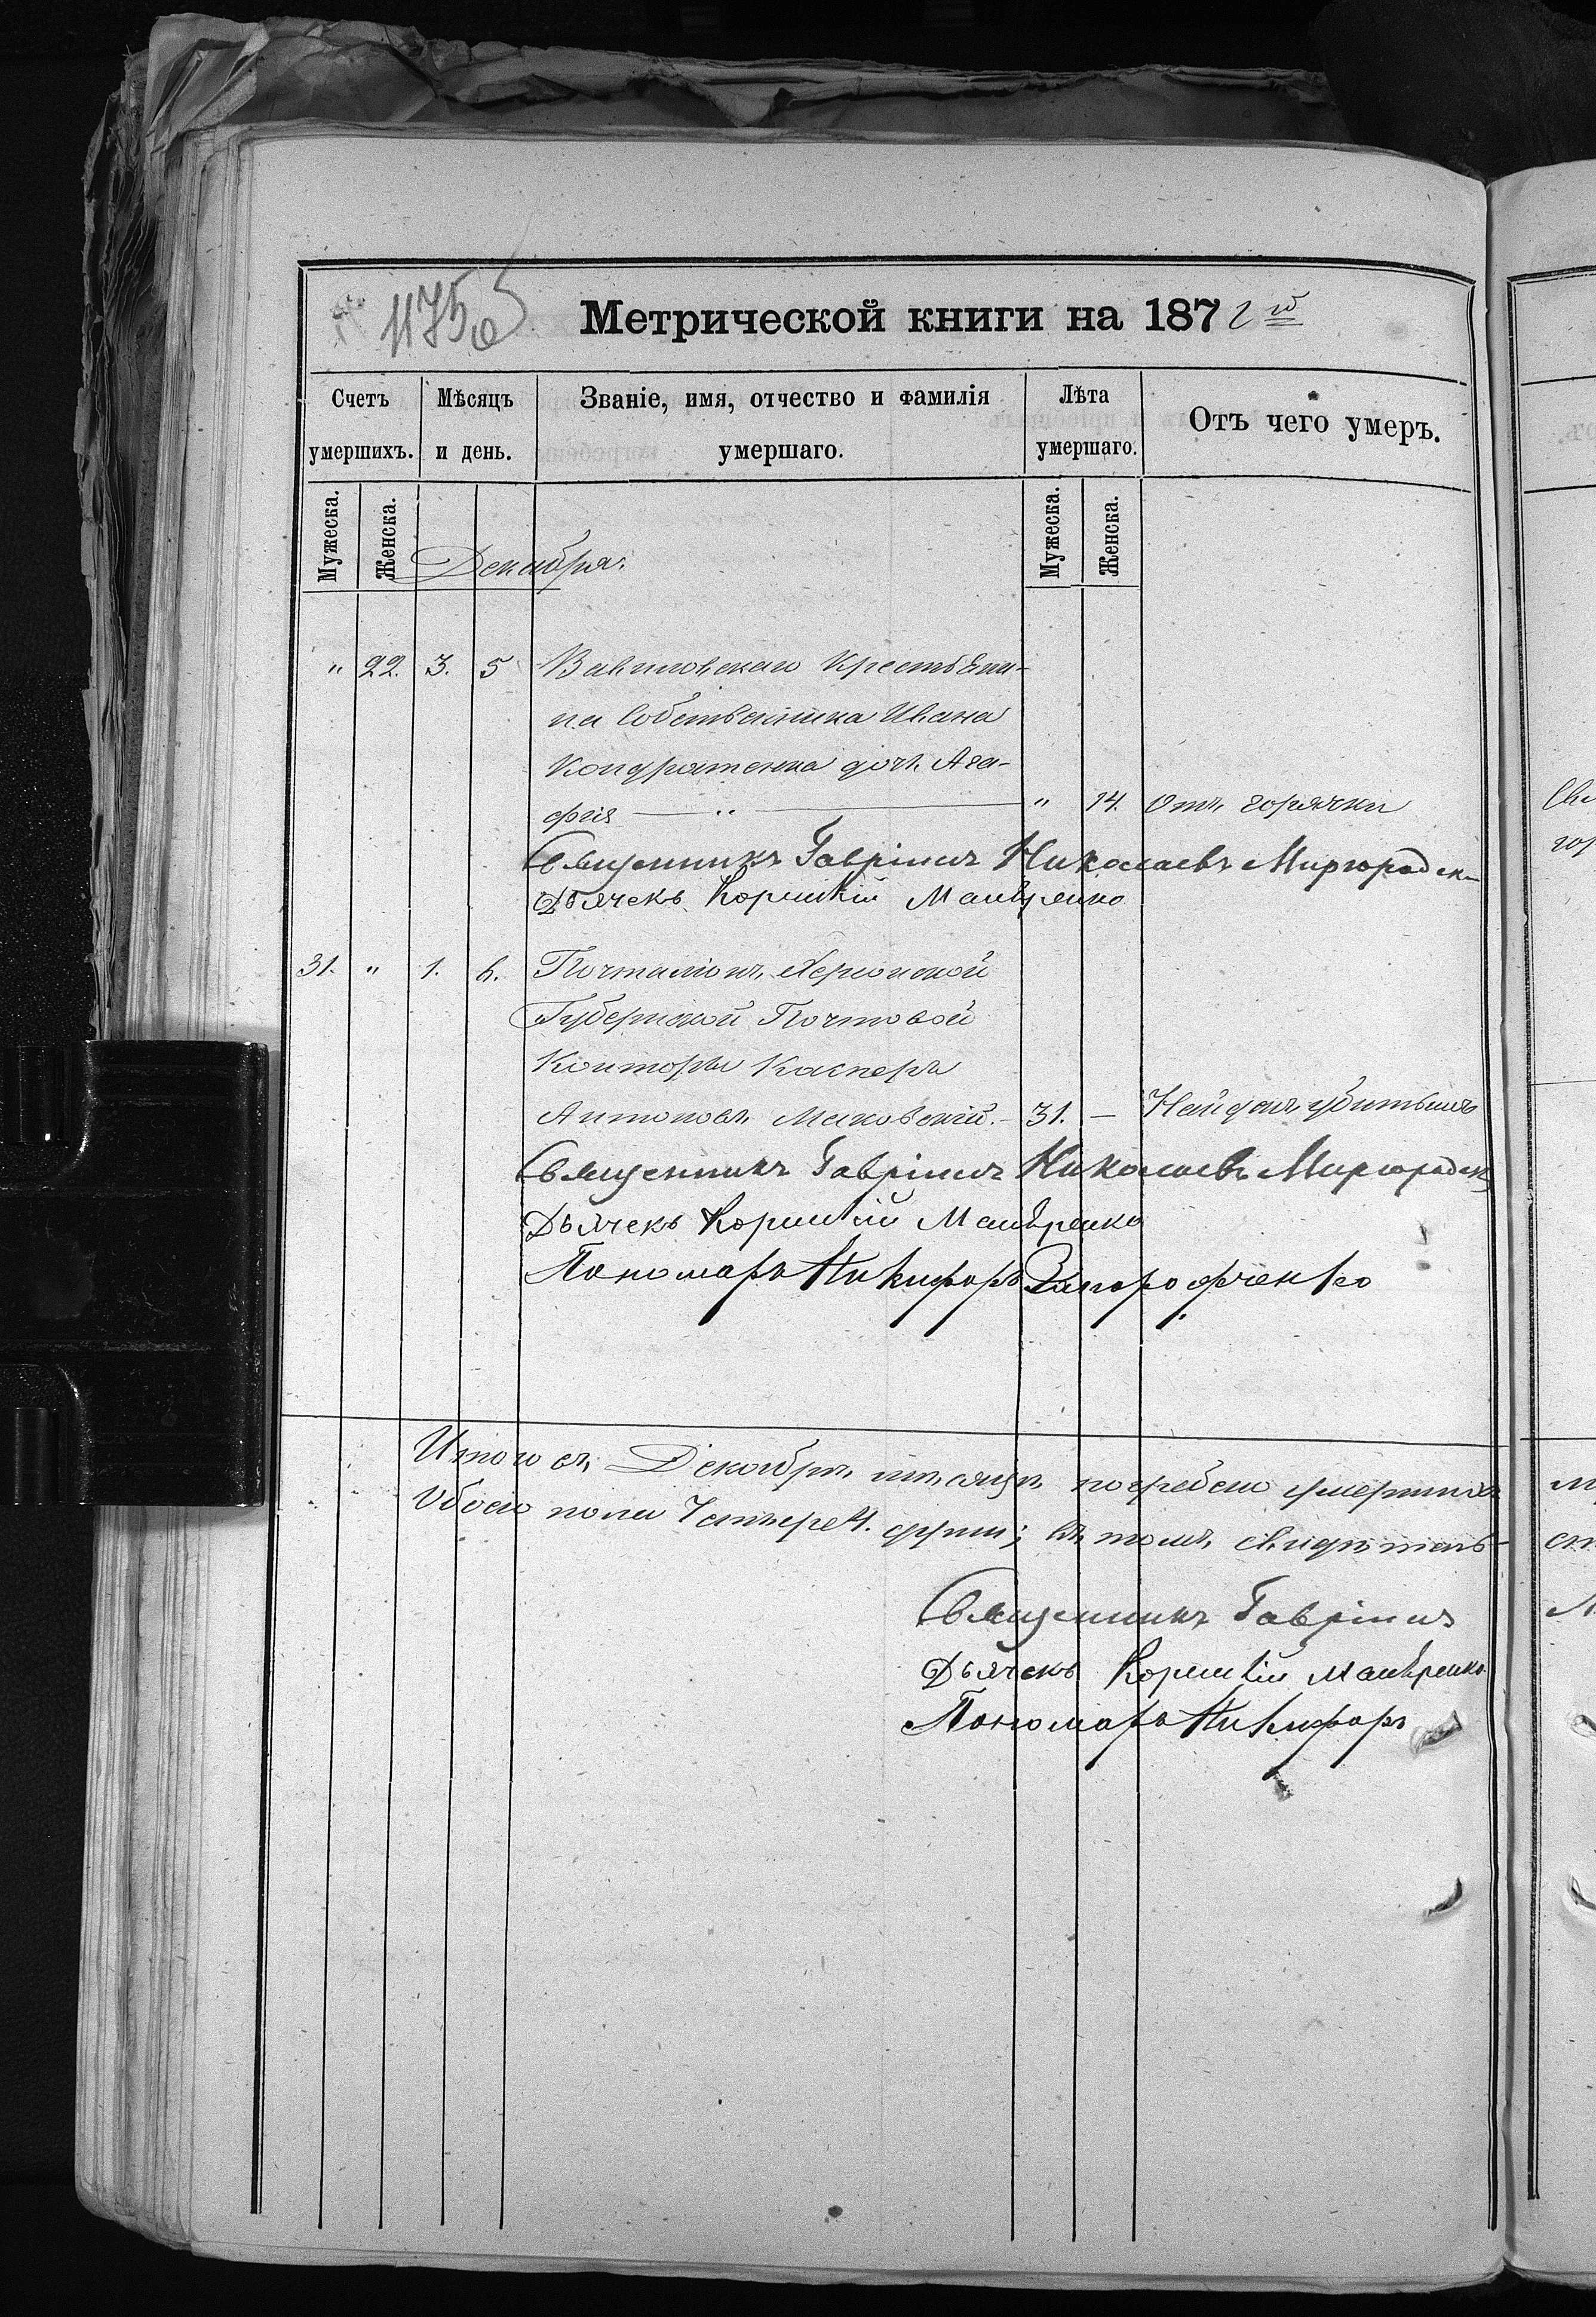 Метрической книги на 1872 й
Счетъ умершихъ.
Мѣсяцъ и день.
Званіе, имя, отчество и фамилія умершаго.
Лѣта умершаго.
Отъ чего умеръ.
Мужеска. Женска. Мужеска. Женска.
Декабря.
" 22. 3. 5 Вавиловскаго Крестьяни-
на Собственника Ивана
Кондратенка дочь Ага-
фія — " — " 14. Отъ горячки
Священникъ Гавріилъ Николаевъ Миргородск
Дьячекъ Корнилій Мавренко
31. " 1. 6. Почталіонъ Херсонской
Губернской Почтовой
Конторы Касперъ
Антоновъ Маковскій. 31. — Найденъ убитымъ
Священникъ Гавріилъ Николаевъ Миргородск
Дьячекъ Корнилій Мавренко
Пономарь Никифоръ
Итого въ Декабрѣ мѣсяцѣ погребено умершихъ
Обоего пола Четыре 4. души; въ томъ свидѣтель-
Священникъ Гавріилъ
Дьячекъ Корнилій Мавренко
Пономарь Никифоръ